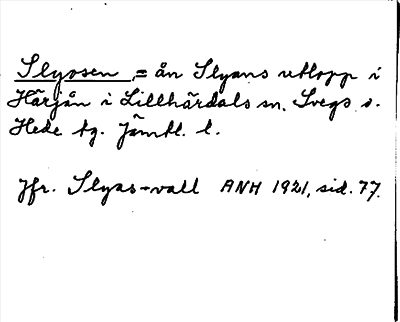 Slyosen = ån Slyans utlopp i
Härjån i Lillhärdals sn. Svegs s.
Hede tg. Jämtl. l.
Jfr. Slyas-vall ANH 1921, sid. 77.